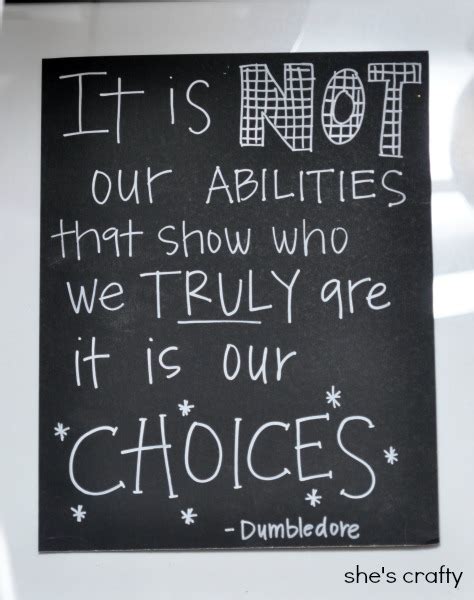 It is NOT
our ABILITIES
that show who
we TRULY are
it is our
CHOICES
-Dumbledore
she's crafty